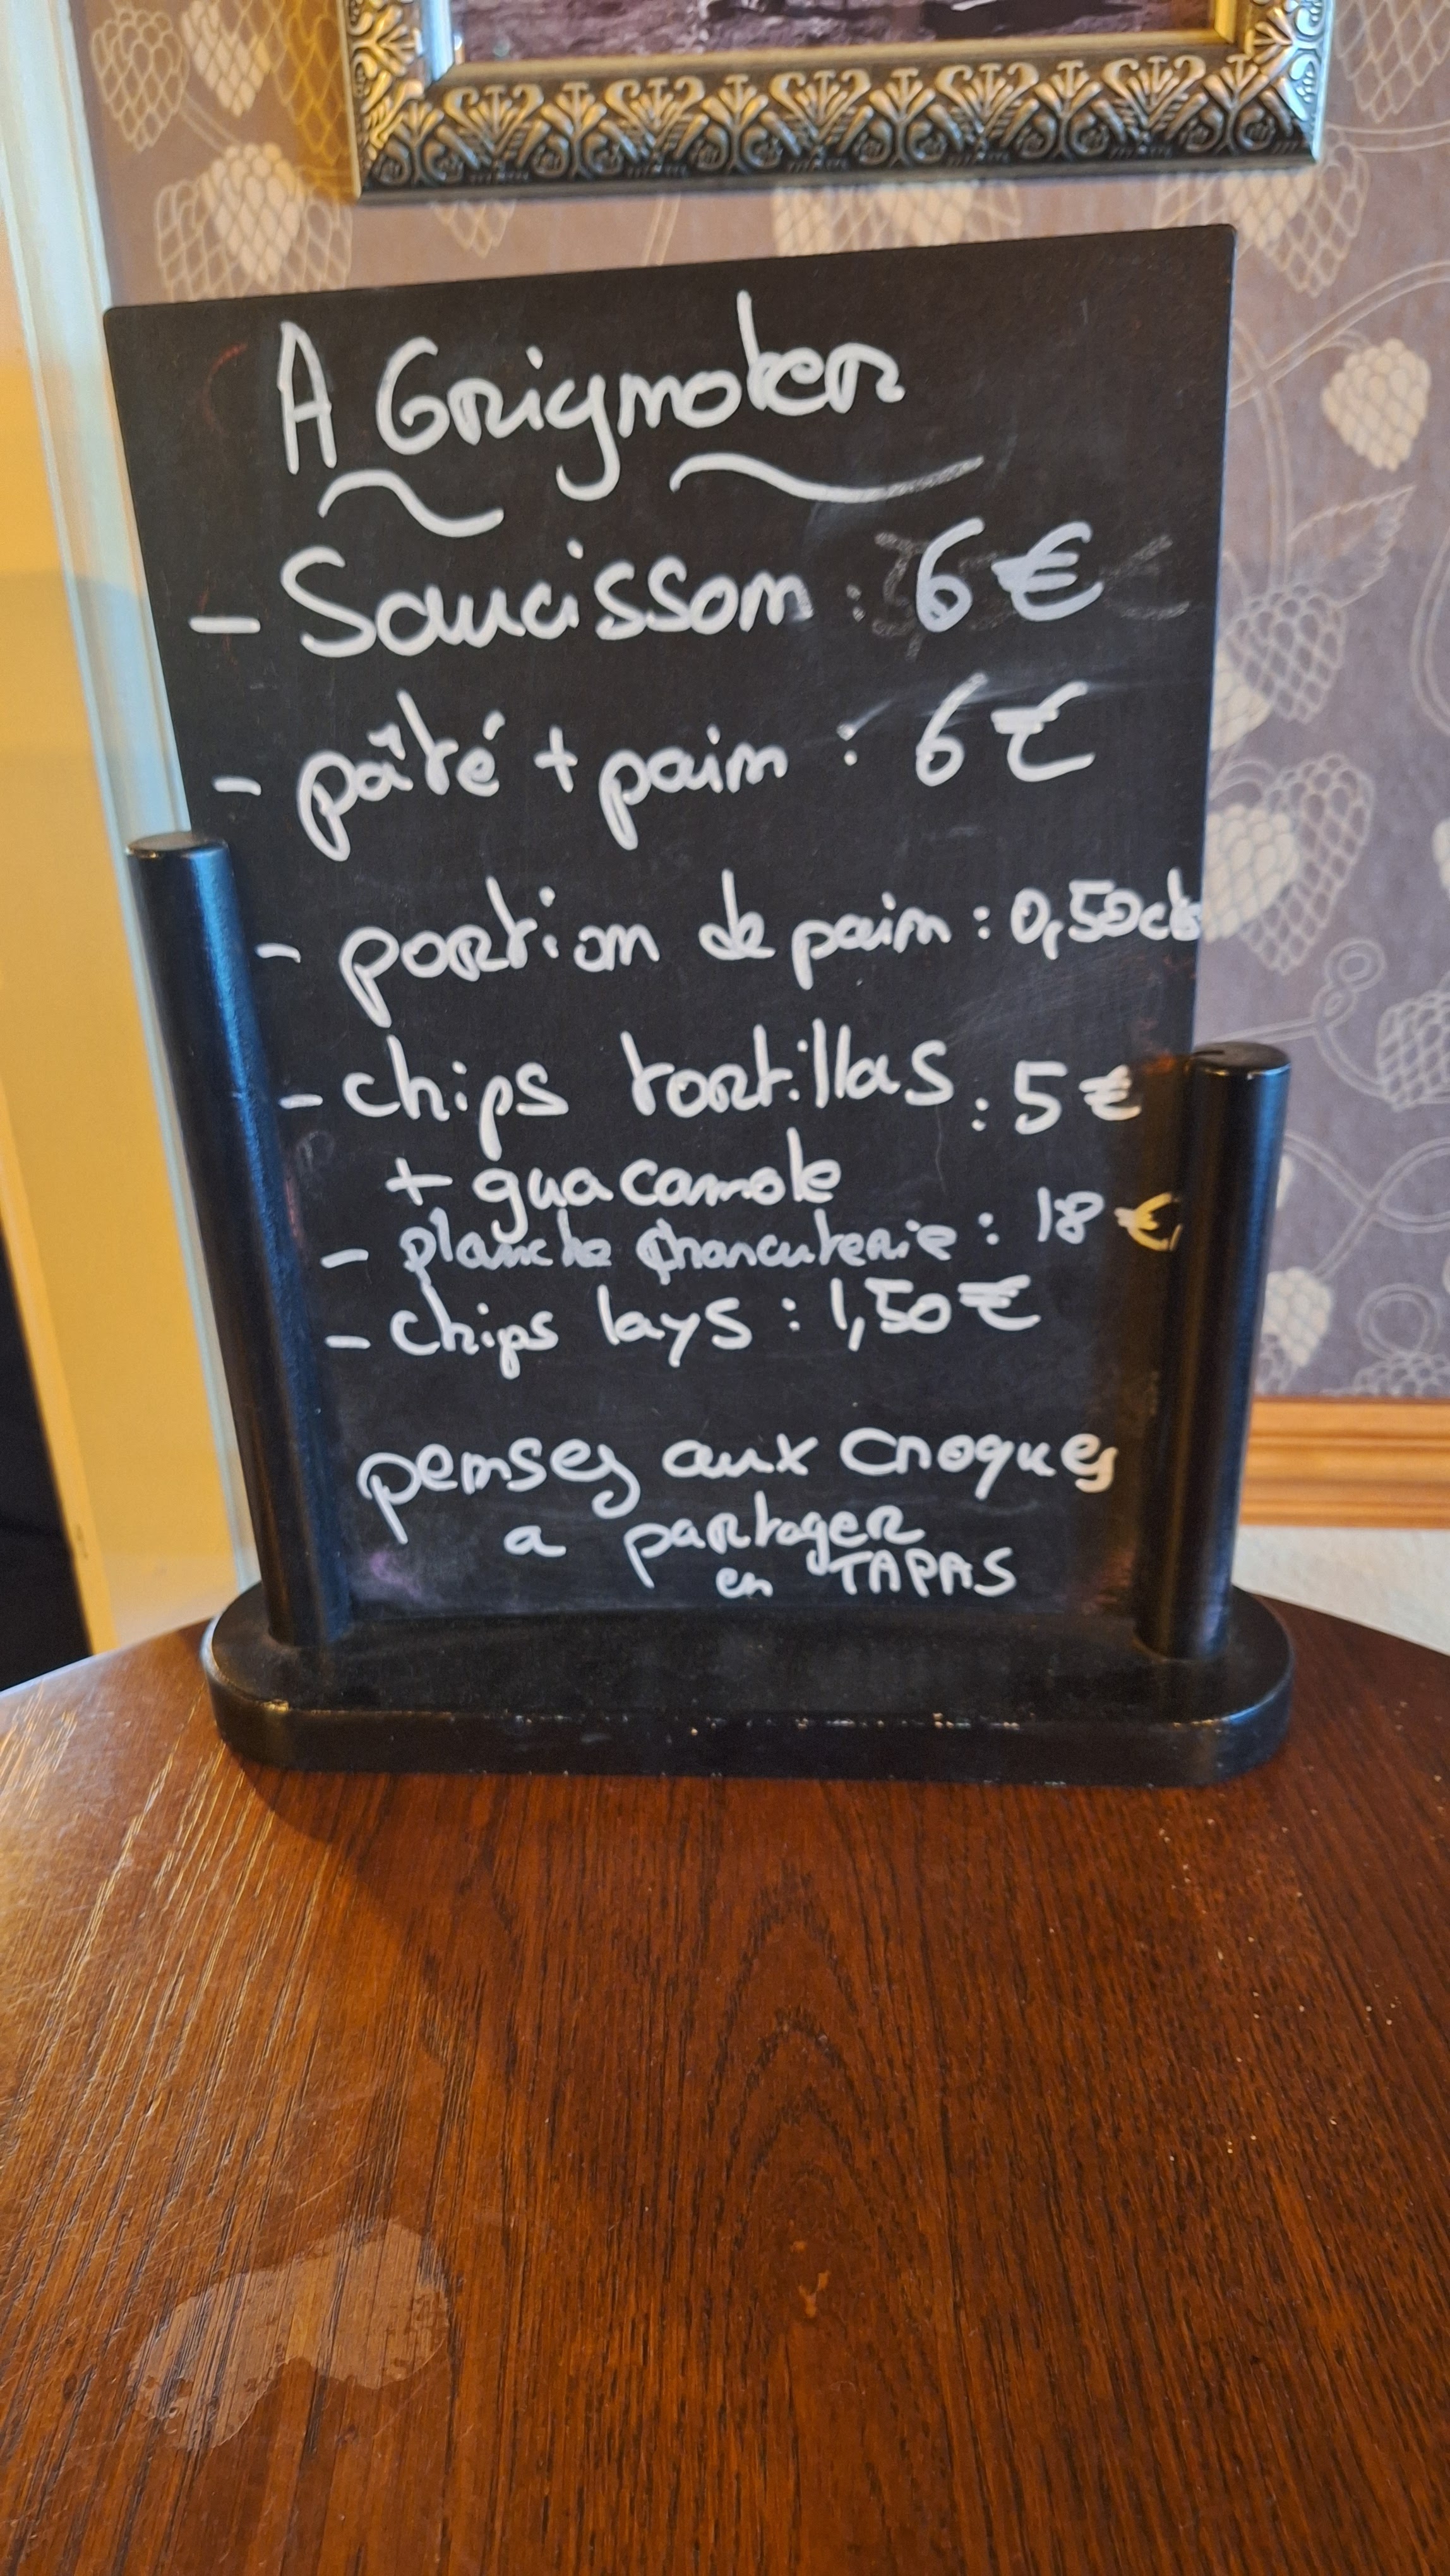 A Grignoter
- Saucisson : 6 €
- pâté + pain : 6 €
- portion de pain : 0,50cts
- chips tortillas : 5 €
+ guacamole
- planche charcuterie : 18 €
- chips lays : 1,50 €
pensez aux croques
a partager
en TAPAS